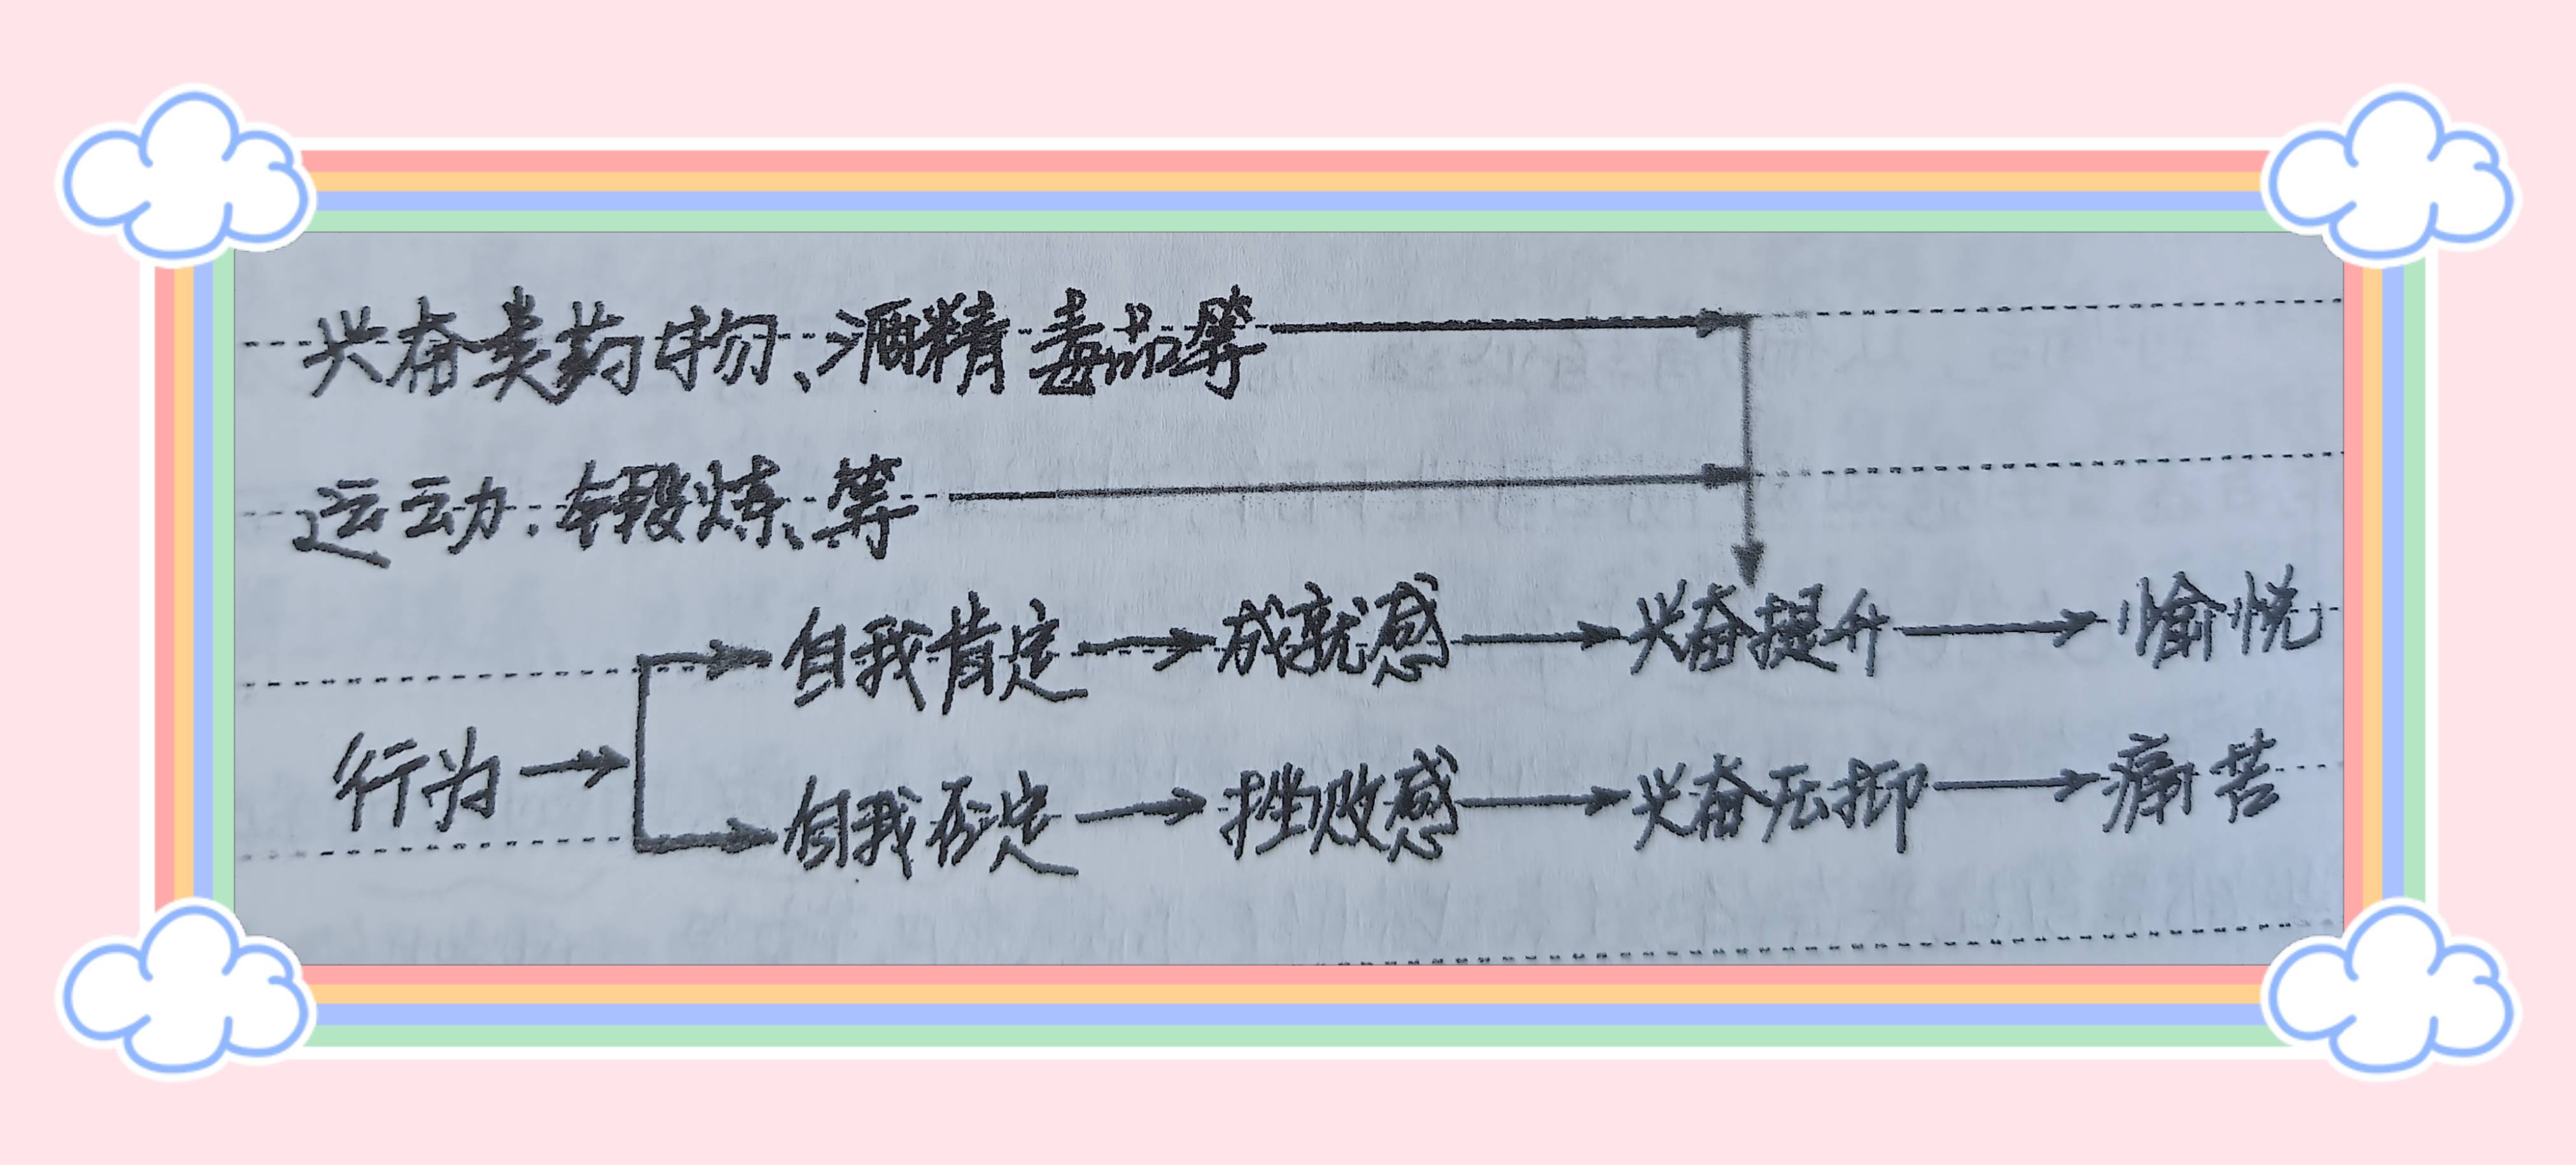 兴奋类药物、酒精毒品等
运动、锻炼、等
自我肯定 成就感 兴奋提升 愉悦
行为
自我否定 挫败感 兴奋压抑 痛苦